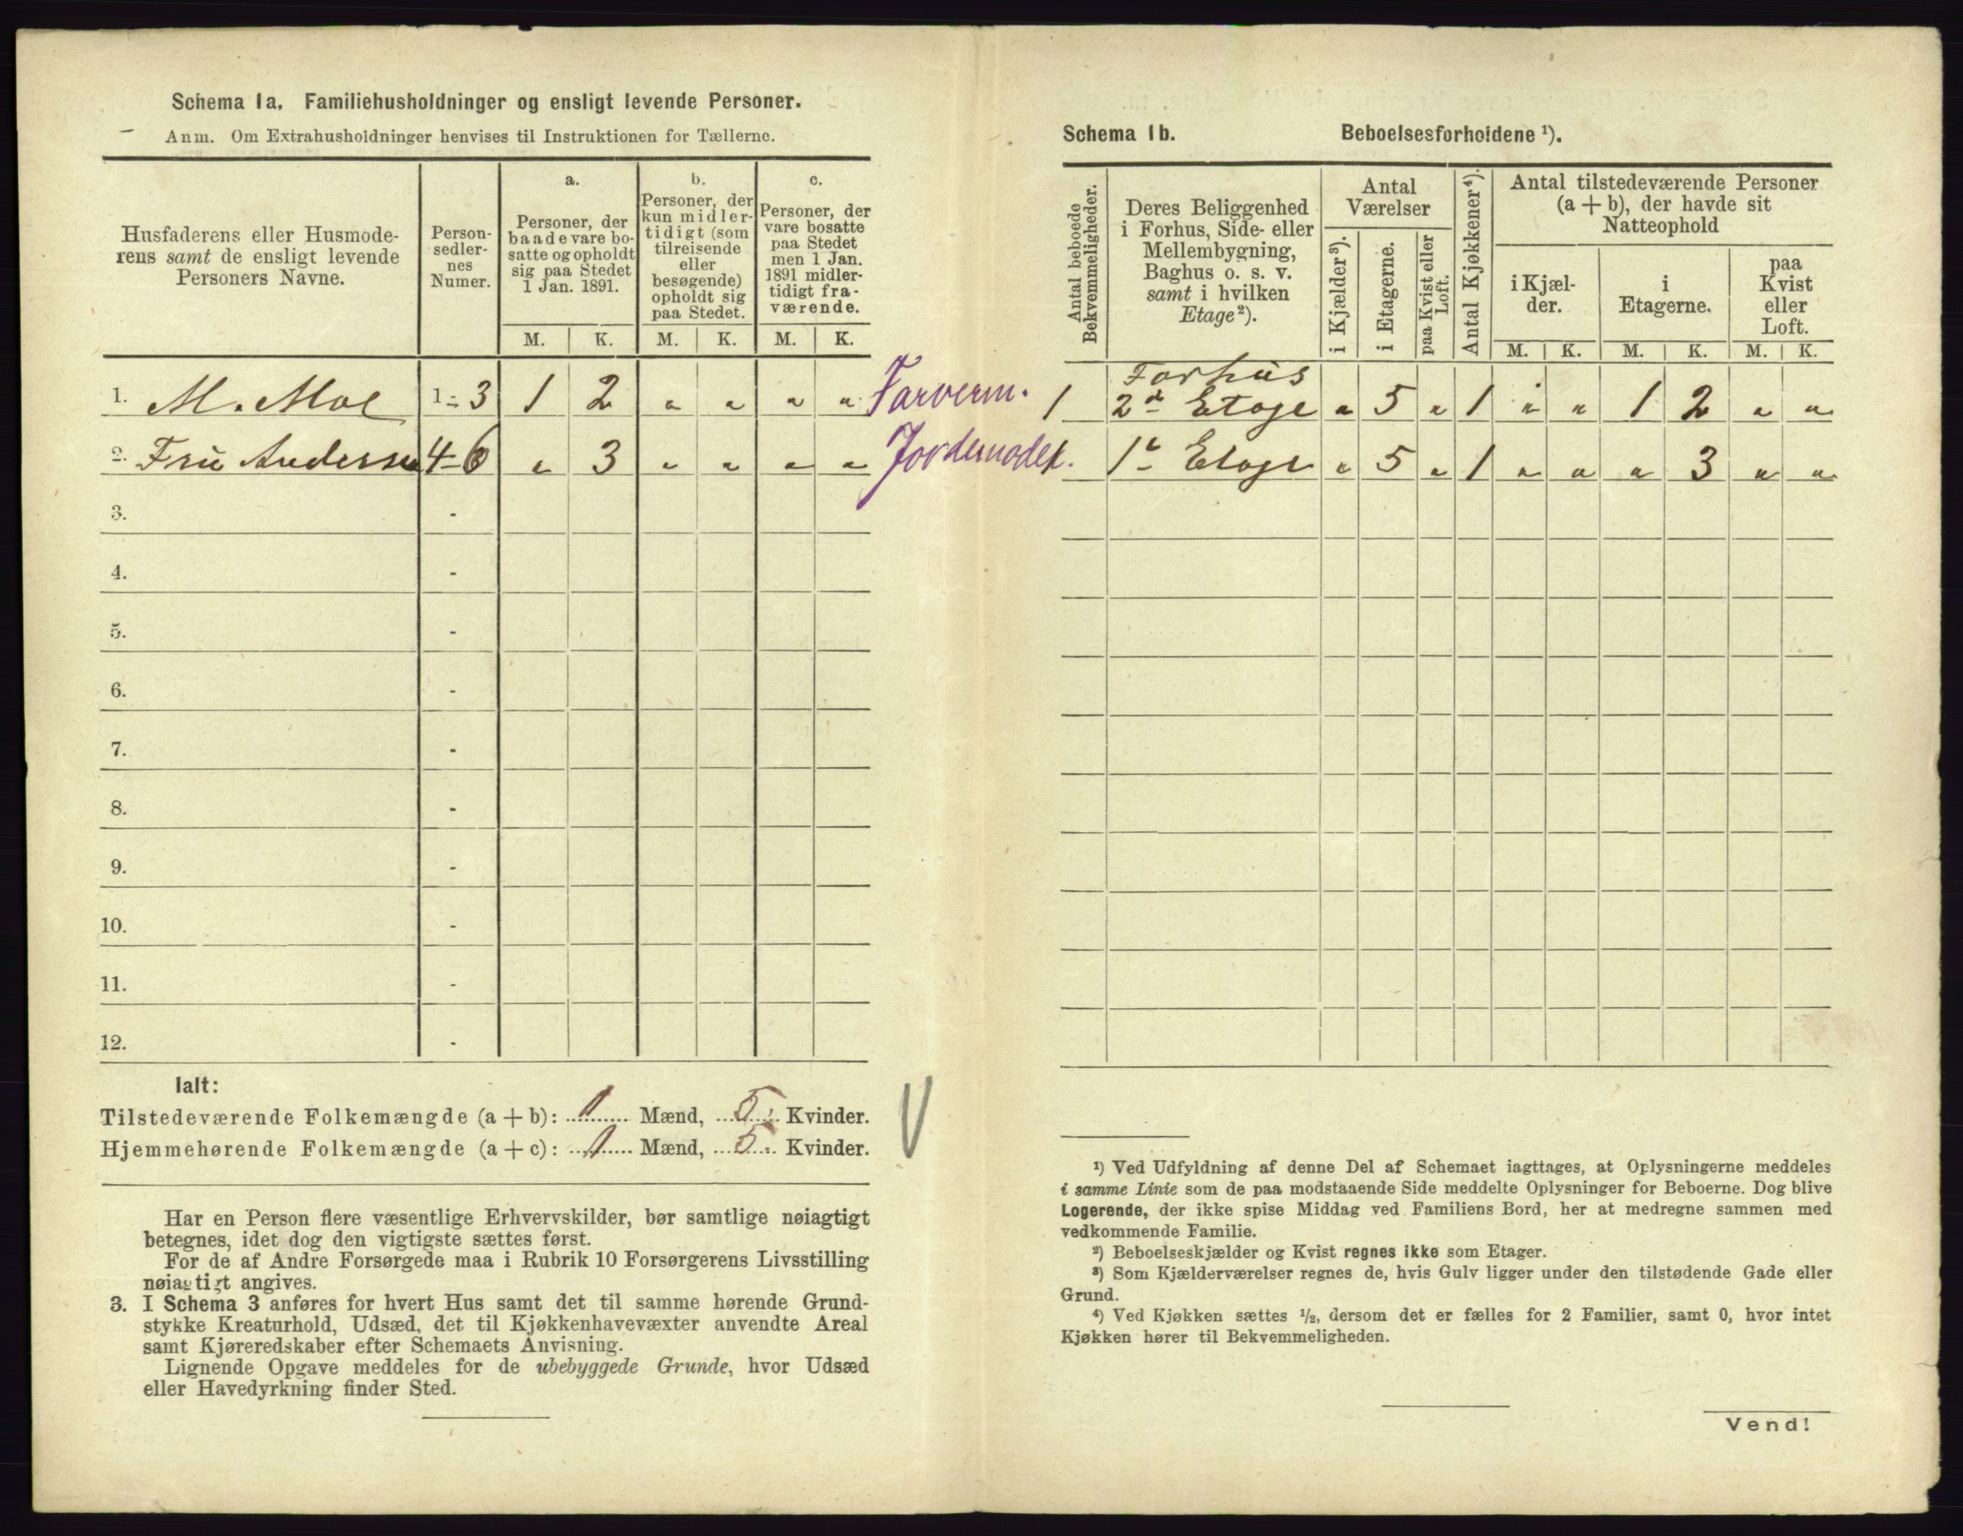 Schema 1a. Familiehusholdninger og ensligt levende Personer.
Anm. Om Extrahusholdninger henvises til Instruktionen for Tællerne.
Husfaderens eller Husmode-
rens samt de ensligt levende
Personers Navne.
Person-
sedler-
nes
Numer.
a.
Personer, der
baade vare bo-
satte og opholdt
sig paa Stedet
1 Jan. 1891.
b.
Personer, der
kun midler-
tidigt (som
tilreisende
eller
besøgende)
opholdt sig
paa Stedet.
c.
Personer, der
vare bosatte
paa Stedet
men 1 Jan.
1891 midler-
tidigt fra-
værende.
M. K. M. K. M. K.
1. M. Moe 1-3 1 2 " " " " Farverm.
2. Fru Andersen 4-6 " 3 " " " " Jordemoder.
3. -
4. -
5. -
6. -
7. -
8. -
9. -
10. -
11. -
12. -
Ialt:
Tilstedeværende Folkemængde (a + b): 1 Mænd, 5 Kvinder.
Hjemmehørende Folkemængde (a + c): 1 Mænd, 5 Kvinder.
Har en Person flere væsentlige Erhvervskilder, bør samtlige nøiagtigt
betegnes, idet dog den vigtigste sættes først.
For de af Andre Forsørgede maa i Rubrik 10 Forsørgerens Livsstilling
nøiagtigt angives.
3. I Schema 3 anføres for hvert Hus samt det til samme hørende Grund-
stykke Kreaturhold, Udsæd, det til Kjøkkenhavevæxter anvendte Areal
samt Kjøreredskaber efter Schemaets Anvisning.
Lignende Opgave meddeles for de ubebyggede Grunde, hvor Udsæd
eller Havedyrkning finder Sted.
Schema 1b. Beboelsesforholdene ¹).
Antal beboede
Bekvemmeligheder.
Deres Beliggenhed
i Forhus, Side- eller
Mellembygning,
Baghus o. s. v.
samt i hvilken
Etage²).
Antal
Værelser
i Kjælder³).
i Etagerne.
paa Kvist eller
Loft.
Antal Kjøkkener⁴).
Antal tilstedeværende Personer
(a + b), der havde sit
Natteophold
i Kjæl-
der.
i
Etagerne.
paa
Kvist
eller
Loft.
M. K. M. K. M. K.
Forhus
1 2d Etage " 5 " 1 " " 1 2 " "
1. 1e Etage " 5 " 1 " " " 3 " "
¹) Ved Udfyldning af denne Del af Schemaet iagttages, at Oplysningerne meddeles
i samme Linie som de paa modstaaende Side meddelte Oplysninger for Beboerne. Dog blive
Logerende, der ikke spise Middag ved Familiens Bord, her at medregne sammen med
vedkommende Familie.
²) Beboelseskjælder og Kvist regnes ikke som Etager.
³) Som Kjælderværelser regnes de, hvis Gulv ligger under den tilstødende Gade eller
Grund.
⁴) Ved Kjøkken sættes ½, dersom det er fælles for 2 Familier, samt 0, hvor intet
Kjøkken hører til Bekvemmeligheden.
Vend!